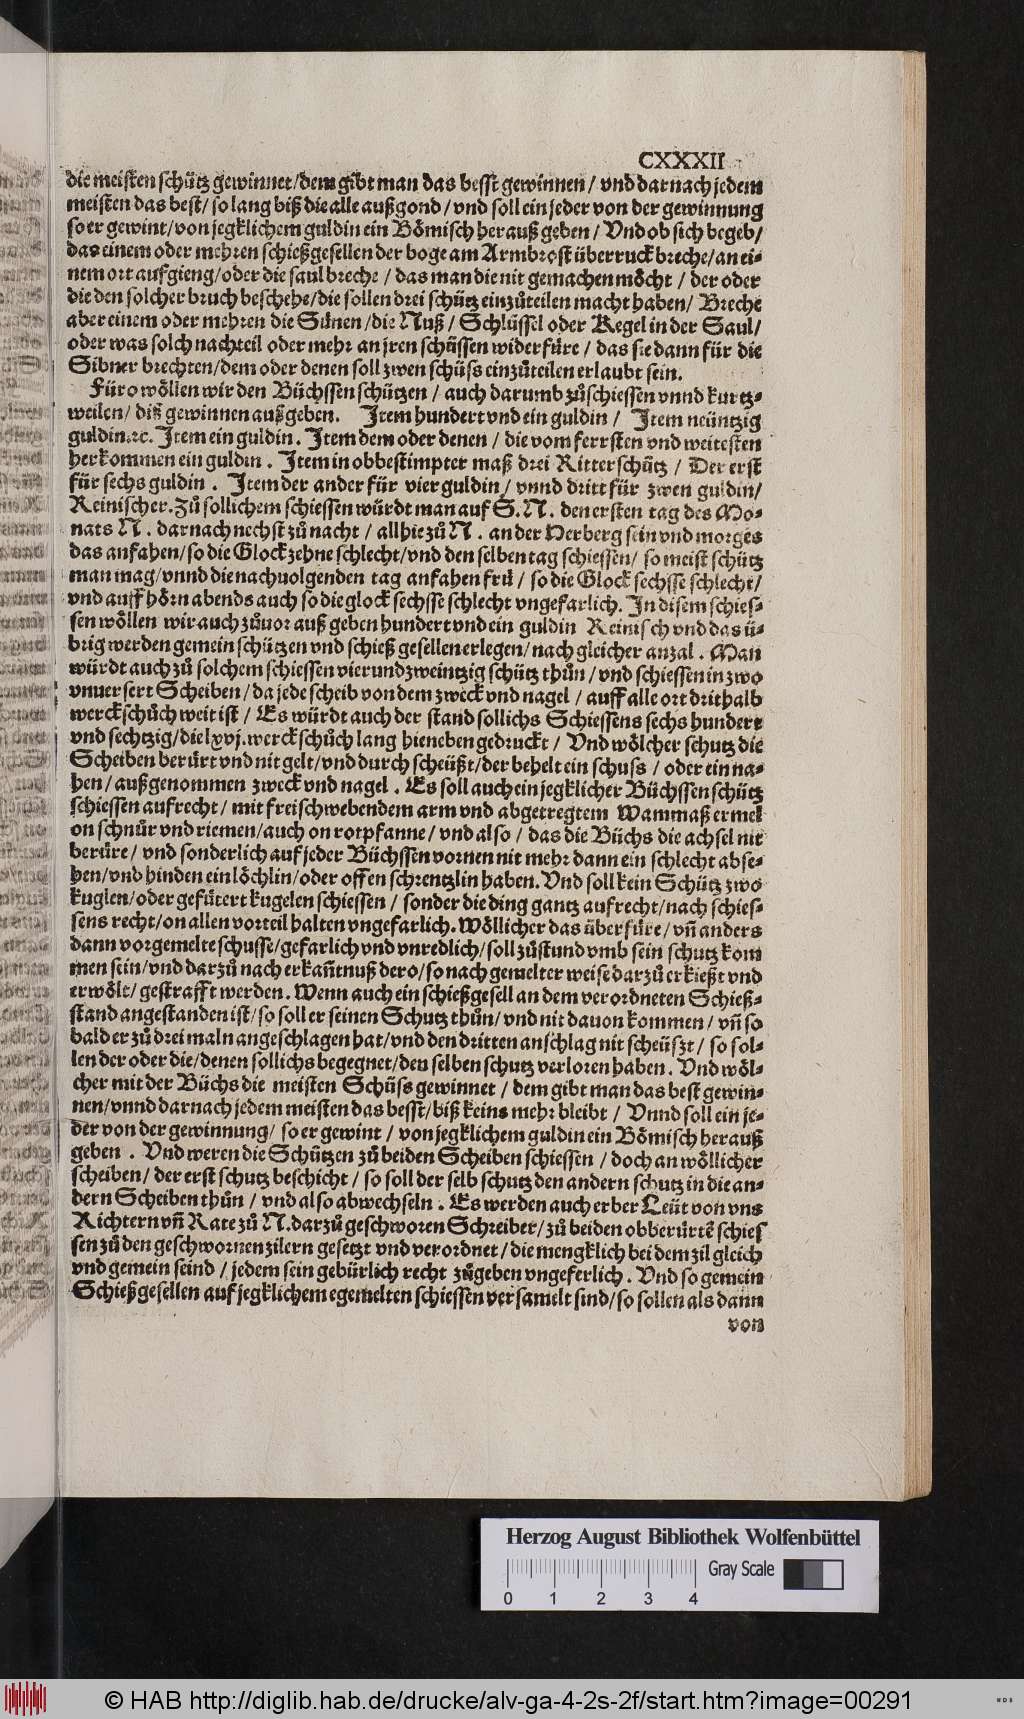 CXXXII
die meisten schütz gewinnet/dem gibt man das besst gewinnen / vnd darnach jedem
meisten das best/ so lang biß die alle außgond / vnd soll ein jeder von der gewinnung
so er gewint/von jegklichem guldin ein Bömisch herauß geben / Vnd ob sich begeb/
das einem oder mehren schießgesellen der boge am Armbrost überruck breche/an ei⸗
nem ort aufgieng/oder die saul breche / das man die nit gemachen möcht / der oder
die den solcher bruch beschehe/die sollen drei schütz einzůteilen macht haben/ Breche
aber einem oder mehren die Sünen/die Nuß / Schlüssel oder Kegel in der Saul/
oder was solch nachteil oder mehr an jren schüssen widerfüre / das sie dann für die
Sibner brechten/dem oder denen soll zwen schüss einzůteilen erlaubt sein.
Füro wöllen wir den Büchssenschützen / auch darumb zůschiessen vnnd kurtz⸗
weilen/ diß gewinnen außgeben. Item hundert vnd ein guldin / Item neüntzig
guldin.ꝛc. Item ein guldin. Item dem oder denen / die vom ferrsten vnd weitesten
herkommen ein guldin . Item in obbestimpter maß drei Ritterschütz / Der erst
für sechs guldin . Item der ander für vier guldin/ vnnd dritt für zwen guldin/
Reinischer. Zů sollichem schiessen würdt man auf S. N. den ersten tag des Mo⸗
nats N . darnach nechst zů nacht / allhie zů N . an der Herberg sein vnd morges
das anfahen/so die Glock zehne schlecht/vnd den selben tag schiessen/ so meist schütz
man mag/vnnd die nachuolgenden tag anfahen frü / so die Glock sechsse schlecht/
vnd auffhörn abends auch so die glock sechsse schlecht vngefarlich. In disem schies⸗
sen wöllen wir auch zůuor auß geben hundert vnd ein guldin Reinisch vnd das ü⸗
brig werden gemein schützen vnd schieß gesellen erlegen/ nach gleicher anzal . Man
würdt auch zů solchem schiessen vierundzweintzig schütz thůn/ vnd schiessen in zwo
vnuersert Scheiben/ da jede scheib von dem zweck vnd nagel / auff alle ort drithalb
werckschůch weit ist / Es würdt auch der stand sollichs Schiessens sechs hundert
vnd sechtzig/die lxvj. werckschůch lang hieneben gedruckt / Vnd wölcher schutz die
Scheiben berürt vnd nit gelt/vnd durch scheüßt/der behelt ein schuss / oder ein na⸗
hen/ außgenommen zweck vnd nagel . Es soll auch ein jegklicher Büchssenschütz
schiessen aufrecht/ mit freischwebendem arm vnd abgetregtem Wammaß ermel
on schnür vnd riemen/auch on rotpfanne/ vnd also / das die Büchs die achsel nit
berüre/ vnd sonderlich auf jeder Büchssen vornen nit mehr dann ein schlecht abse⸗
hen/vnd hinden ein löchlin/oder offen schrentzlin haben. Vnd soll kein Schütz zwo
kuglen/oder gefütert kugelen schiessen / sonder die ding gantz aufrecht/nach schies⸗
sens recht/on allen vorteil halten vngefarlich. Wöllicher das überfüre/ vñ anders
dann vorgemelte schusse/gefarlich vnd vnredlich/soll zůstund vmb sein schutz kom
men sein/vnd darzů nach erkañtnuß dero/so nach gemelter weise darzů erkießt vnd
erwölt/ gestrafft werden. Wenn auch ein schießgesell an dem verordneten Schieß⸗
stand angestanden ist/so soll er seinen Schutz thůn/ vnd nit dauon kommen / vñ so
bald er zů drei maln angeschlagen hat/vnd den dritten anschlag nit scheüszt/ so sol⸗
len der oder die/denen sollichs begegnet/den selben schutz verloren haben. Vnd wöl⸗
cher mit der Büchs die meisten Schüss gewinnet / dem gibt man das best gewin⸗
nen/vnnd darnach jedem meisten das besst/biß keins mehr bleibt / Vnnd soll ein je⸗
der von der gewinnung/ so er gewint / von jegklichem guldin ein Bömisch herauß
geben . Vnd weren die Schützen zů beiden Scheiben schiessen / doch an wöllicher
scheiben/ der erst schutz beschicht / so soll der selb schutz den andern schutz in die an⸗
dern Scheiben thůn / vnd also abwechseln . Es werden auch erber Leüt von vns
Richtern vñ Rate zů N. darzů geschworen Schreiber/zů beiden obberürtē schies
sen zů den geschwornen zilern gesetzt vnd verordnet/die mengklich bei dem zil gleich
vnd gemein seind / jedem sein gebürlich recht zůgeben vngeferlich . Vnd so gemein
Schießgesellen auf jegklichem egemelten schiessen versamelt sind/so sollen als dann
von
Herzog August Bibliothek Wolfenbüttel
Gray Scale
0 1 2 3 4
© HAB http://diglib.hab.de/drucke/alv-ga-4-2s-2f/start.htm?image=00291
WDB